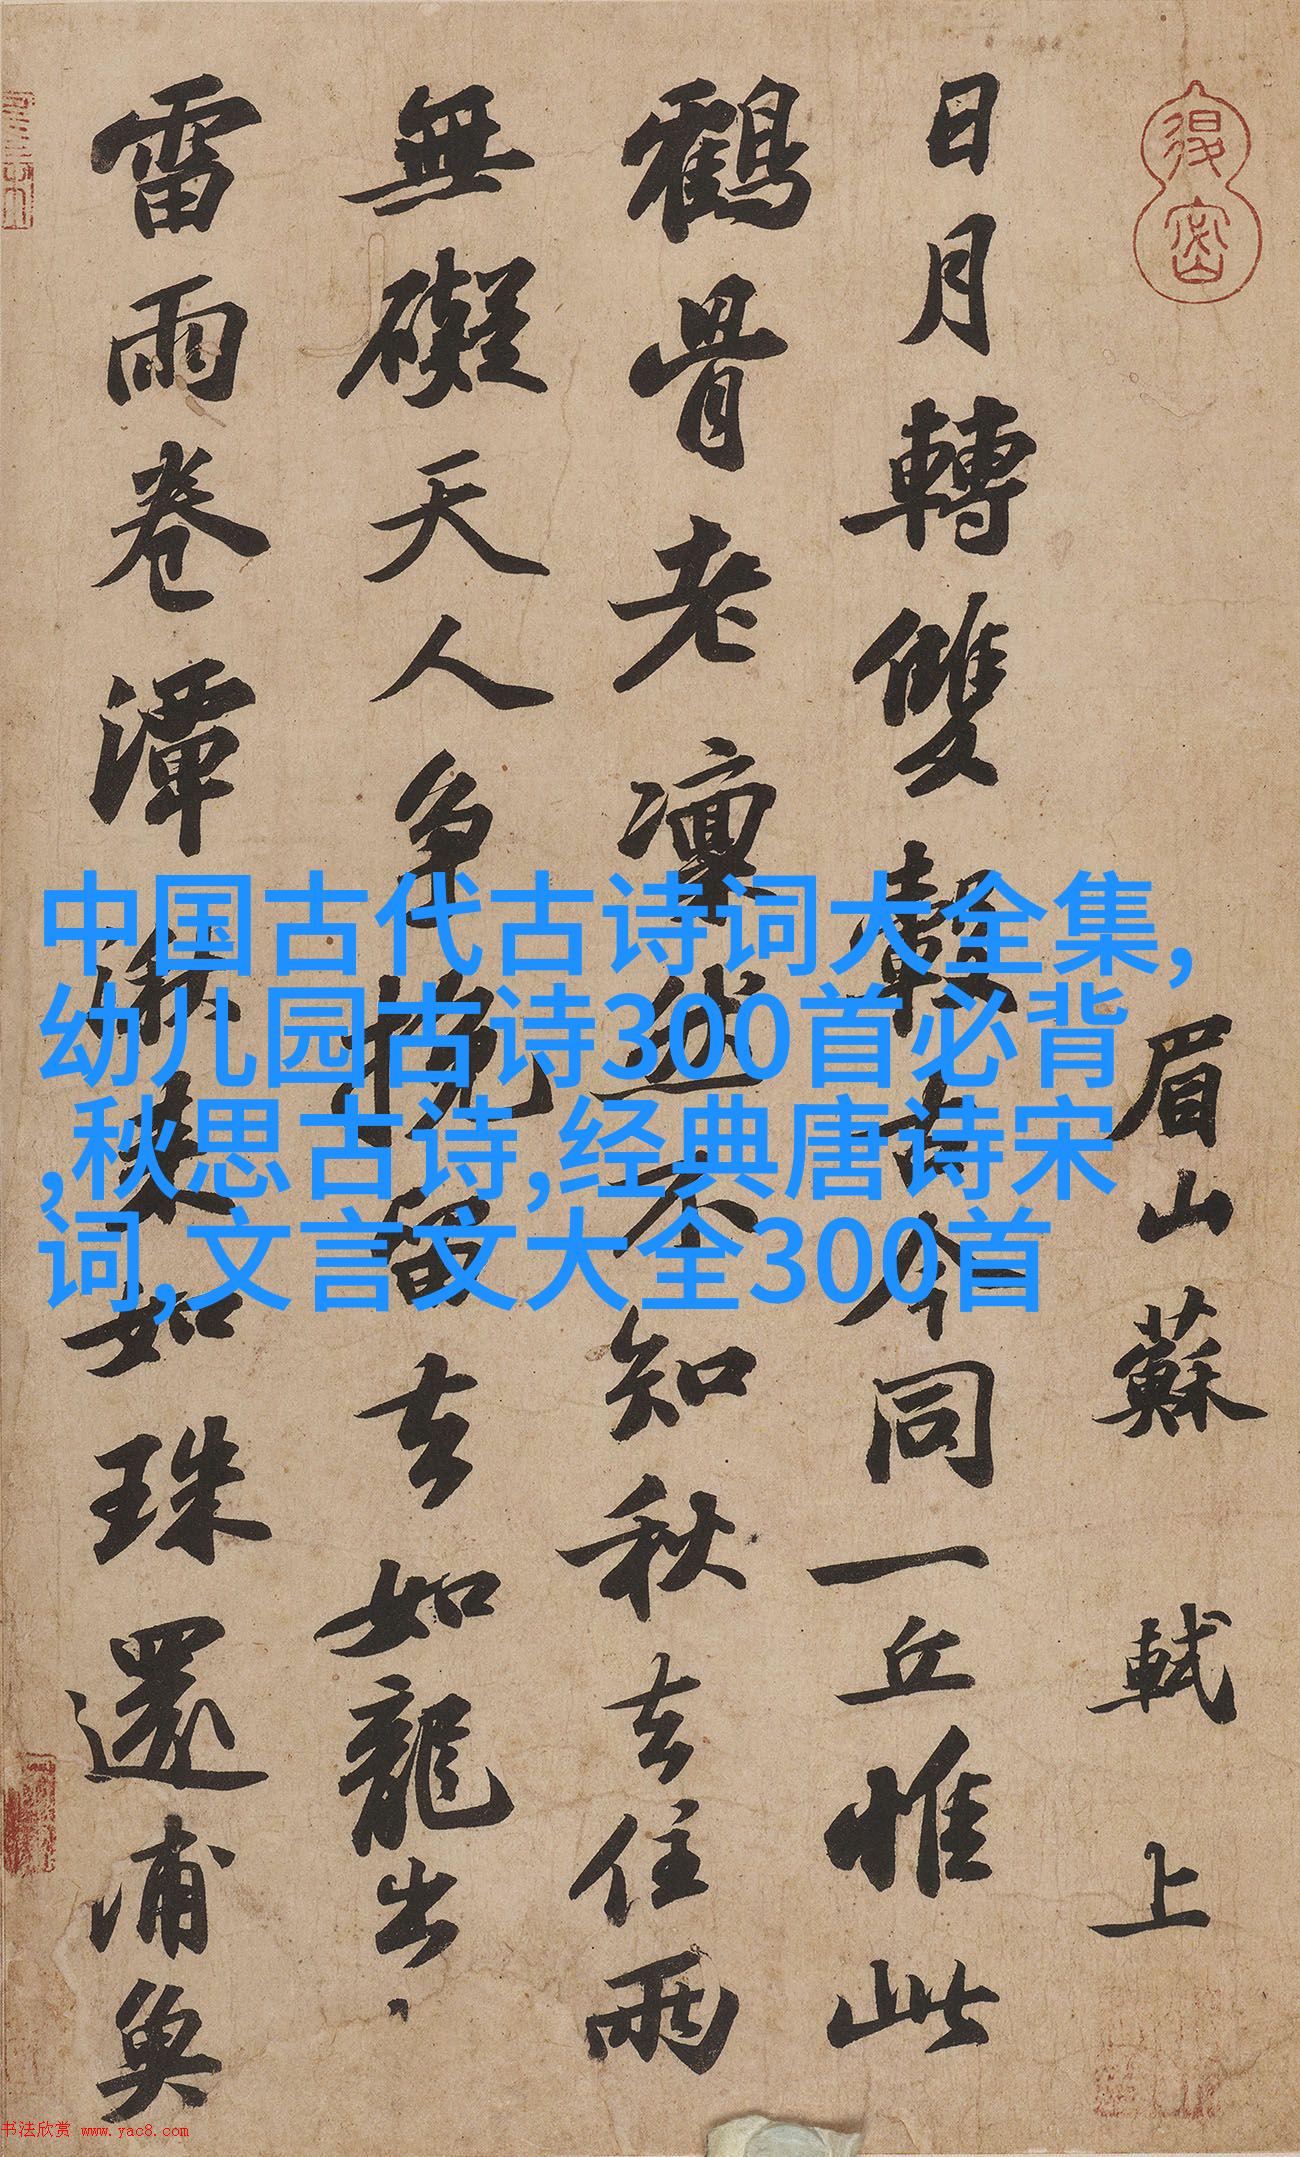 眉山蘇軾上
日月轉雙轂古今同一丘惟此
鶴骨老凜然不知秋去住兩
無礙天人争挽留去如龍出
雷雨卷潭湫来如珠還浦魚
中国古代古诗词大全集,
幼儿园古诗300首必背
,秋思古诗,经典唐诗宋
词,文言文大全300首
书法欣赏 www.yac8.com